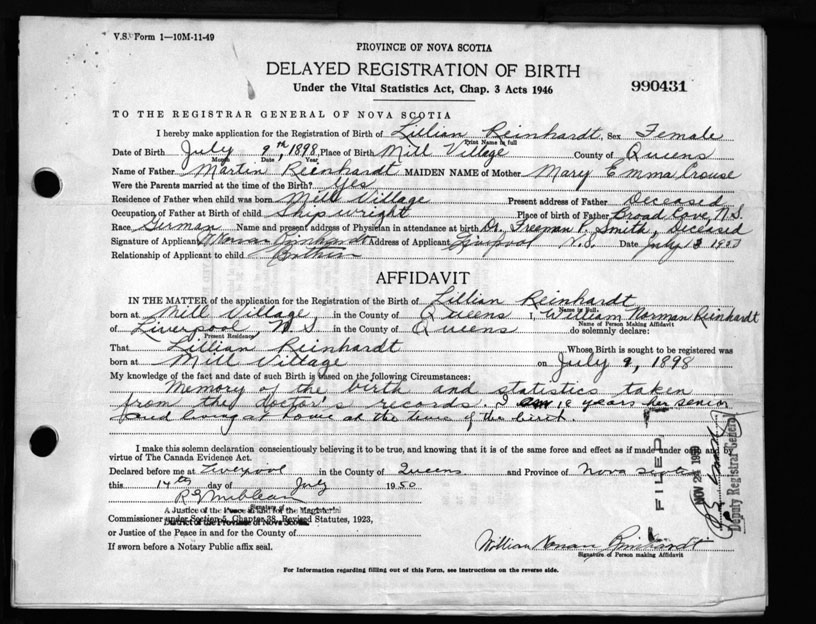 V.S. Form 1—10M-11-49
PROVINCE OF NOVA SCOTIA
DELAYED REGISTRATION OF BIRTH
990431
Under the Vital Statistics Act, Chap. 3 Acts 1946
TO THE REGISTRAR GENERAL OF NOVA SCOTIA
I hereby make application for the Registration of Birth of Lillian Reinhardt, Sex Female
Print Name in full
Date of Birth July 9th, 1898, Place of Birth Mill Village County of Queens
Month Date Year
Name of Father Martin Reinhardt MAIDEN NAME of Mother Mary Emma Crouse
Were the Parents married at the time of the Birth? Yes
Residence of Father when child was born Mill Village Present address of Father Deceased
Occupation of Father at Birth of child Shipwright Place of birth of Father Broad Cove, N.S.
Race German Name and present address of Physician in attendance at birth Dr. Freeman P. Smith, Deceased
Signature of Applicant Norman Reinhardt Address of Applicant Liverpool N.S. Date July 13
Relationship of Applicant to child Brother
AFFIDAVIT
IN THE MATTER of the application for the Registration of the Birth of Lillian Reinhardt
Name in Full
born at Mill Village, in the County of Queens I, William Norman Reinhardt
Name of Person Making Affidavit
of Liverpool, N.S in the County of Queens do solemnly declare:
Present Residence
That Lillian Reinhardt Whose Birth is sought to be registered was
born at Mill Village on July 9, 1898
My knowledge of the fact and date of such Birth is based on the following Circumstances:
Memory of the birth and statistics taken
from the doctor's records. I am 10 years her senior
and living at home at the time of the birth.
I make this solemn declaration conscientiously believing it to be true, and knowing that it is of the same force and effect as if made under oath and by
virtue of The Canada Evidence Act.
Declared before me at Liverpool in the County of Queens and Province of Nova Scotia
this 14th day of July 1950
Signature of
A Justice of the Peace in and for the Magisterial
Commissioner under Section 5, Chapter 38, Revised Statutes, 1923,
District of the Province of Nova Scotia
or Justice of the Peace in and for the County of
If sworn before a Notary Public affix seal.
William Norman Reinhardt
Signature of Person making Affidavit
FILED
NOV 2
Deputy Registrar General
For Information regarding filling out of this Form, see instructions on the reverse side.